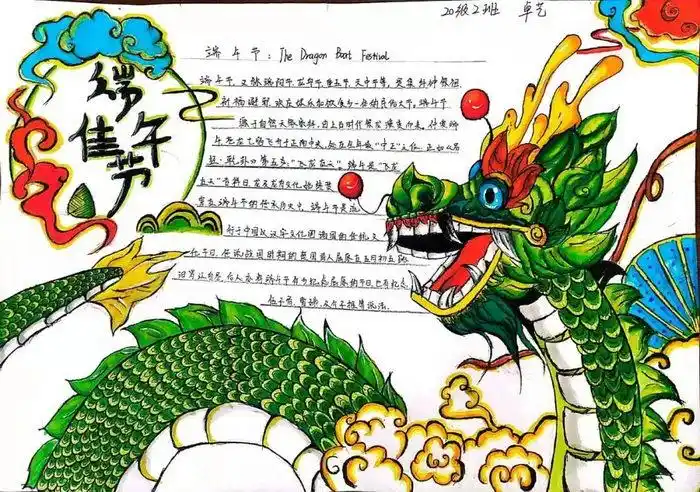 20级2班 卓艺
端午佳节
端午节：The Dragon Boat Festival
端午节，又称端阳节、龙舟节、重五节、天中节等，是集拜神祭祖、
祈福辟邪、欢庆娱乐和饮食为一体的民俗大节。端午节
源于自然天象崇拜，由上古时代祭龙演变而来。仲夏端
午，苍龙七宿飞升于正南中天，处在全年最“中正”之位，正如《易
经·乾卦》第五爻：“飞龙在天”。端午是“飞龙
在天”吉祥日，龙及龙舟文化始终
贯穿在端午节的传承历史中。端午节是流
行于中国及汉字文化圈诸国的传统文
化节日，传说战国时期的楚国诗人屈原在五月初五跳
汨罗江自尽，后人亦将端午节作为纪念屈原的节日；也有纪念
伍子胥、曹娥及介子推等说法。